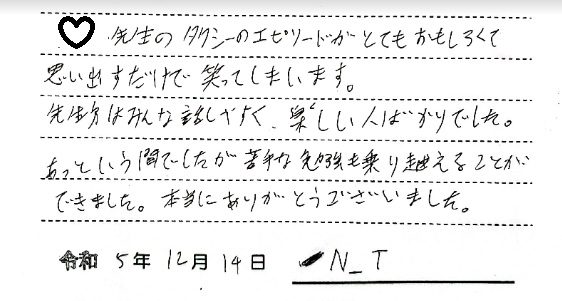 ♡ 先生のタクシーのエピソードがとてもおもしろくて
思い出すだけで笑ってしまいます。
先生方はみんな話しやすく、楽しい人ばかりでした。
あっという間でしたが苦手な勉強も乗り越えることが
できました。本当にありがとうございました。
令和 5年 12月 14日 N_T